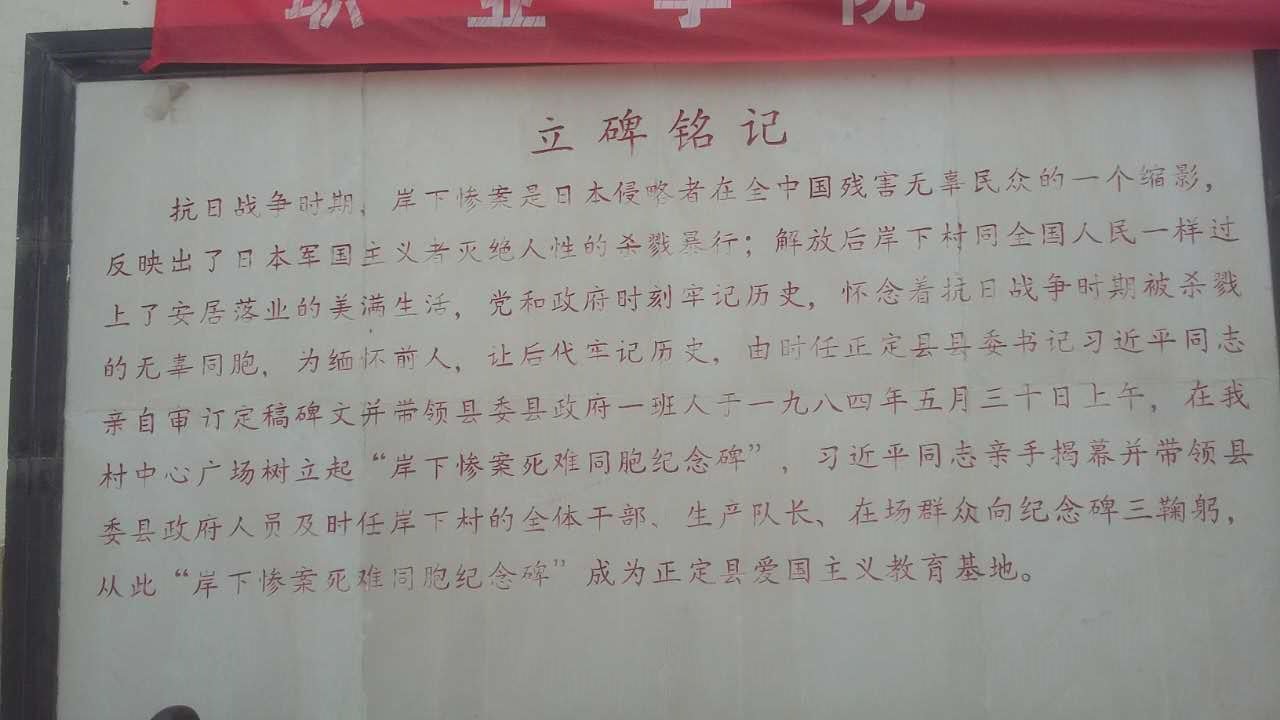 职业学院
立碑铭记
抗日战争时期，岸下惨案是日本侵略者在全中国残害无辜民众的一个缩影，
反映出了日本军国主义者灭绝人性的杀戮暴行；解放后岸下村同全国人民一样过
上了安居落业的美满生活，党和政府时刻牢记历史，怀念着抗日战争时期被杀戮
的无辜同胞，为缅怀前人，让后代牢记历史，由时任正定县县委书记习近平同志
亲自审订定稿碑文并带领县委县政府一班人于一九八四年五月三十日上午，在我
村中心广场树立起“岸下惨案死难同胞纪念碑”，习近平同志亲手揭幕并带领县
委县政府人员及时任岸下村的全体干部、生产队长、在场群众向纪念碑三鞠躬，
从此“岸下惨案死难同胞纪念碑”成为正定县爱国主义教育基地。